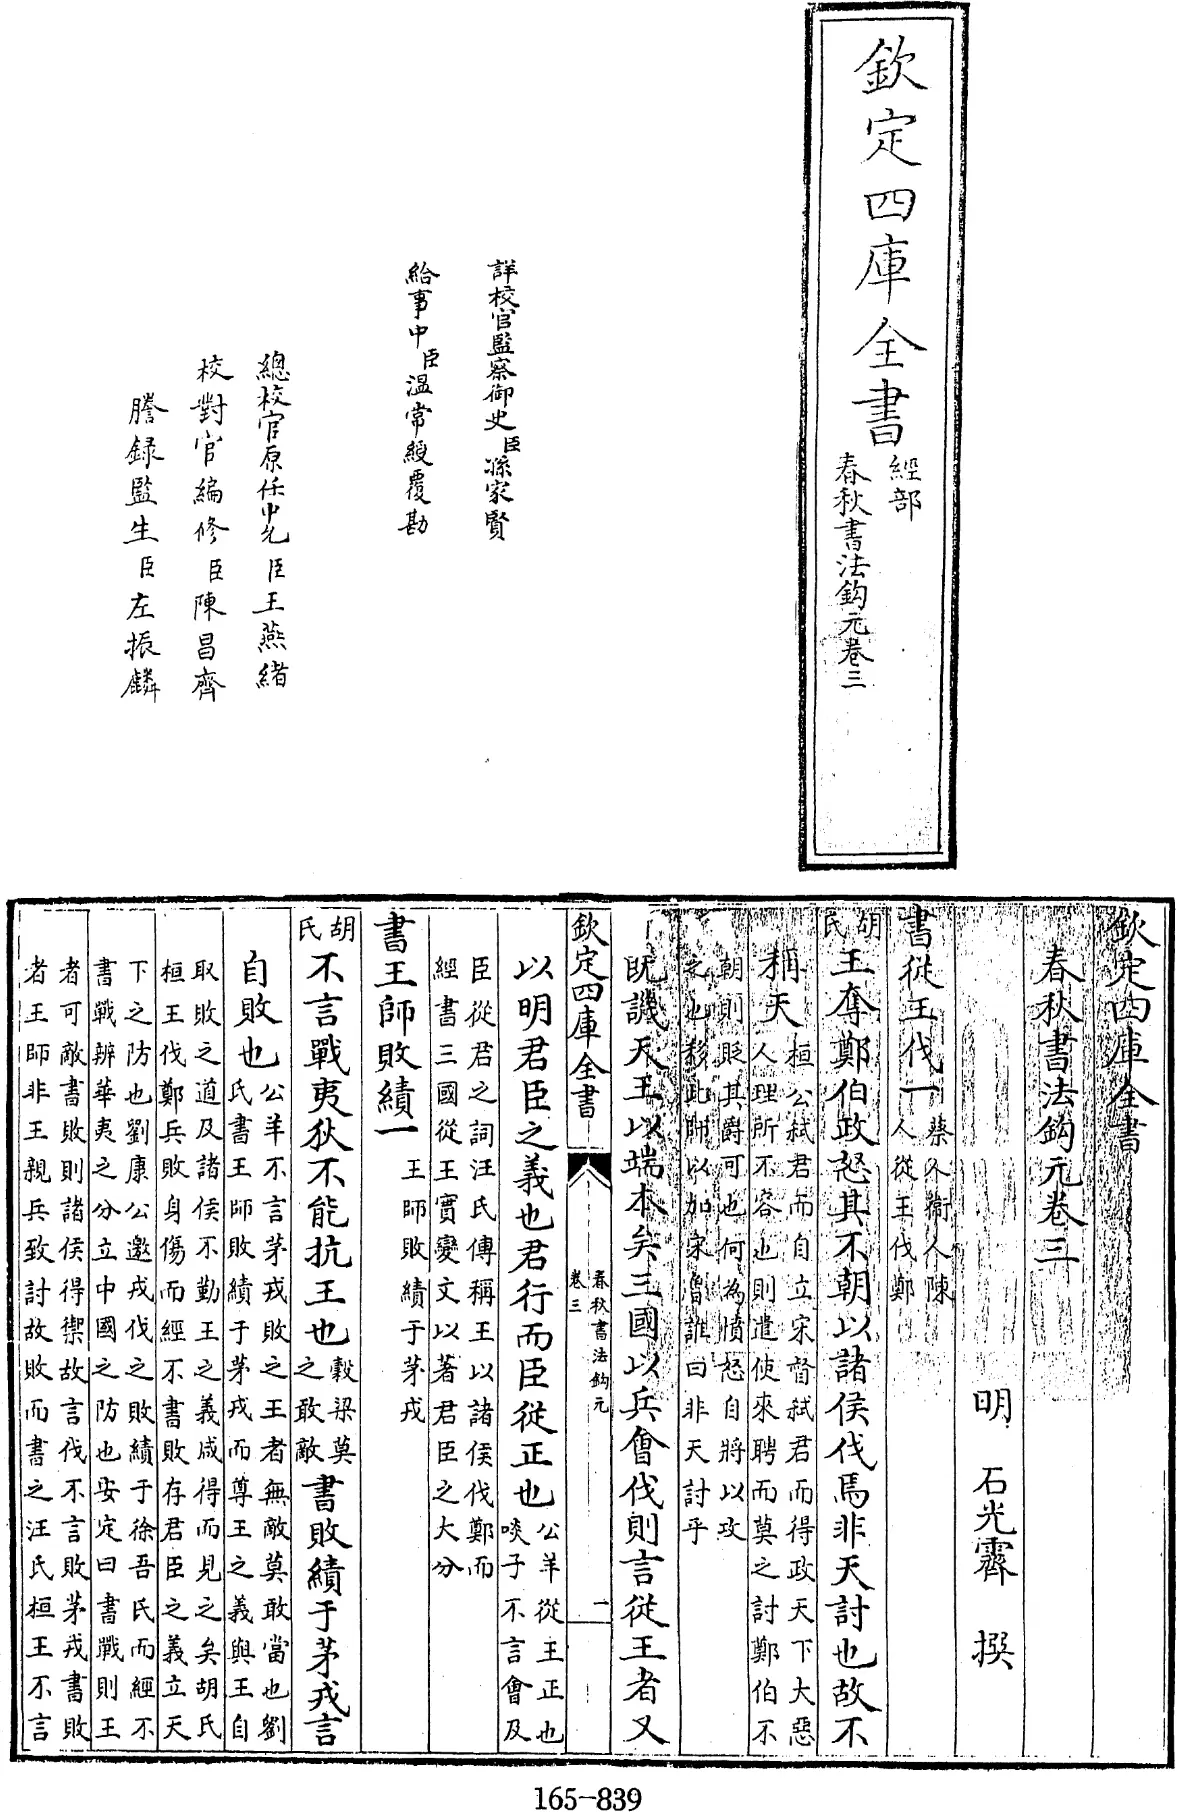 欽定四庫全書
經部
春秋書法鈎元卷三
詳校官監察御史臣孫家賢
給事中臣溫常綬覆勘
總校官原任中允臣王燕緒
校對官編修臣陳昌齊
謄錄監生臣左振麟
欽定四庫全書
春秋書法鈎元卷三
明 石光霽 撰
書從王伐一
蔡人衛人陳
人從王伐鄭
胡氏
王奪鄭伯政怒其不朝以諸侯伐焉非天討也故不
稱天
桓公弒君而自立宋督弒君而得政天下大惡
人理所不容也則遣使來聘而莫之討鄭伯不
朝則貶其爵可也何為憤怒自將以攻
之也移此師以加宋魯誰曰非天討乎
既譏天王以端本矣三國以兵會伐則言從王者又
欽定四庫全書
春秋書法鈎元
卷三
一
以明君臣之義也君行而臣從正也
公羊從王正也
啖子不言會及
臣從君之詞汪氏傳稱王以諸侯伐鄭而
經書三國從王實變文以著君臣之大分
書王師敗績一
王師敗績于茅戎
胡氏
不言戰夷狄不能抗王也
穀梁莫
之敢敵
書敗績于茅戎言
自敗也
公羊不言茅戎敗之王者無敵莫敢當也劉
氏書王師敗績于茅戎而尊王之義與王自
取敗之道及諸侯不勤王之義咸得而見之矣胡氏
桓王伐鄭兵敗身傷而經不書敗存君臣之義立天
下之防也劉康公邀戎伐之敗績于徐吾氏而經不
書戰辨華夷之分立中國之防也安定曰書戰則王
者可敵書敗則諸侯得禦故言伐不言敗茅戎書敗
者王師非王親兵致討故敗而書之汪氏桓王不言
165-839